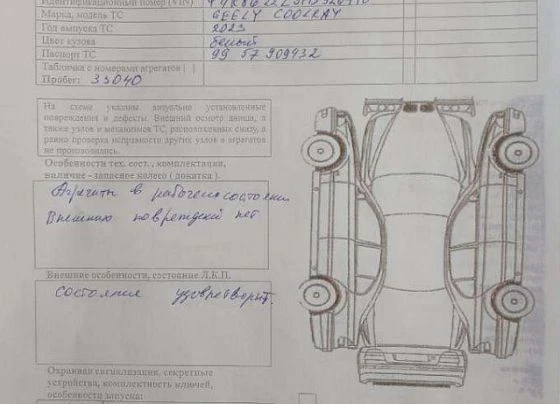 Идентификационный номер (VIN)
Марка, модель ТС GEELY COOLRAY
Год выпуска ТС 2023
Цвет кузова белый
Паспорт ТС 99 57 909432
Табличка с номерами агрегатов ( )
Пробег: 33040
На схеме указаны визуально установленные
повреждения и дефекты. Внешний осмотр днища, а
также узлов и механизмов ТС, расположенных снизу, а
равно проверка исправности других узлов и агрегатов
не производились.
Особенности тех. сост., комплектации,
наличие - запасное колесо ( докатка ).
Агрегаты в рабочем состоянии
Внешних повреждений нет
Внешние особенности, состояние Л.К.П.
состояние удовлетворит.
Охранная сигнализация, секретные
устройства, комплектность ключей,
особенности запуска: